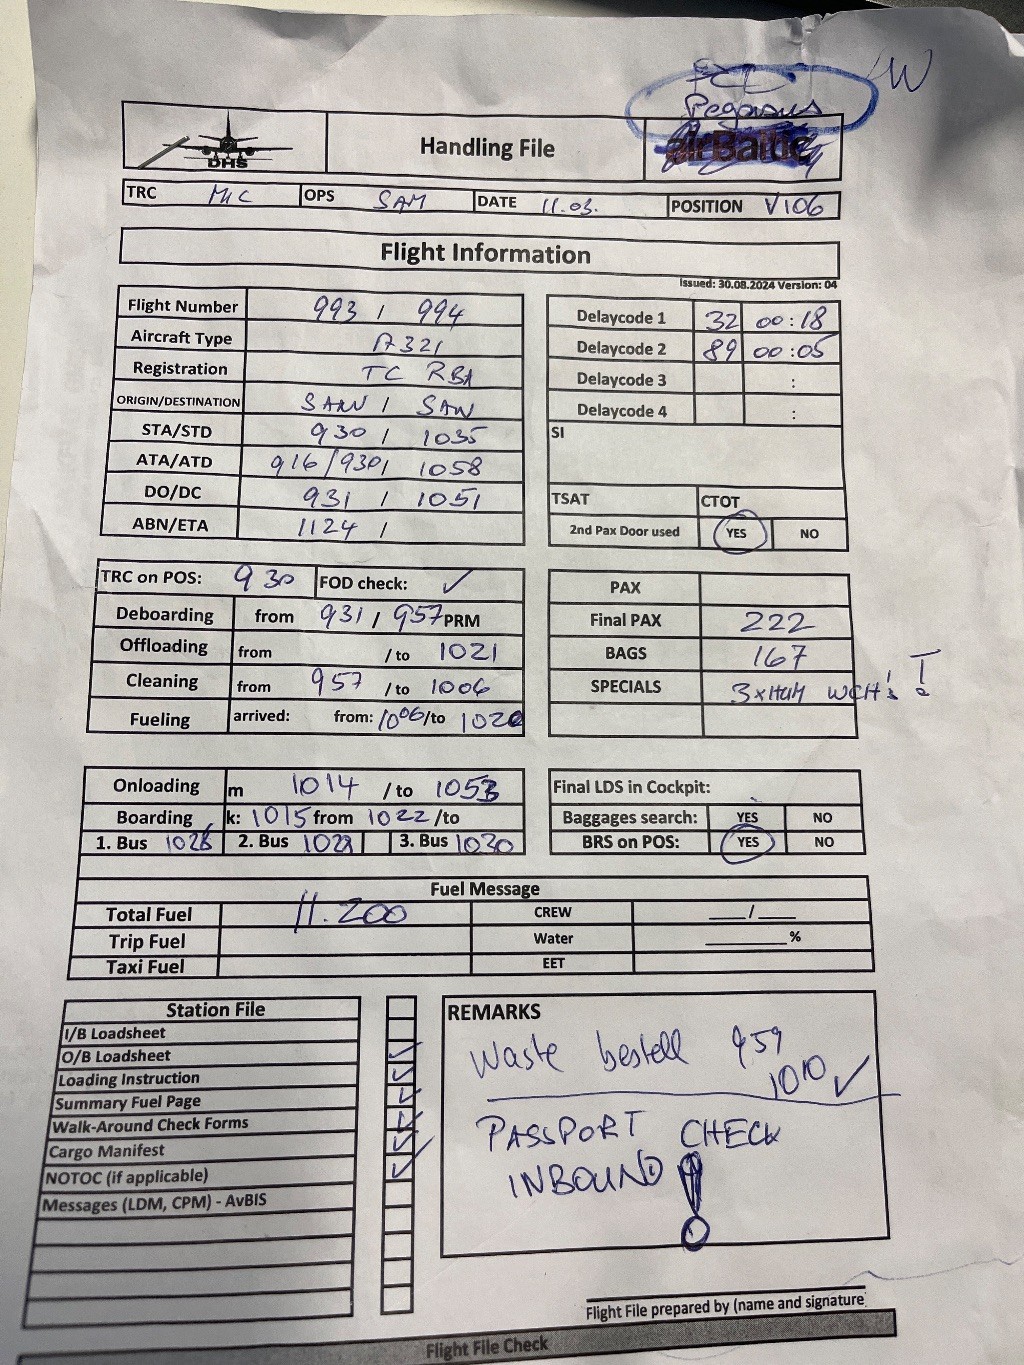 W
Pegasus
DHS
Handling File
airBaltic
TRC MIC OPS SAM DATE 11.03. POSITION V106
Flight Information
Issued: 30.08.2024 Version: 04
Flight Number 993 / 994
Aircraft Type A321
Registration TC RBA
ORIGIN/DESTINATION SAW / SAW
STA/STD 930 / 1035
ATA/ATD 916/930/ 1058
DO/DC 931 / 1051
ABN/ETA 1124 /
Delaycode 1 32 00:18
Delaycode 2 89 00:05
Delaycode 3 :
Delaycode 4 :
SI
TSAT CTOT
2nd Pax Door used YES NO
TRC on POS: 930 FOD check: ✓
Deboarding from 931 / 957 PRM
Offloading from / to 1021
Cleaning from 957 / to 1006
Fueling arrived: from: 1006/to 1020
PAX
Final PAX 222
BAGS 167
SPECIALS 3x WCH
Onloading m 1014 / to 1053
Boarding k: 1015 from 1022 /to
1. Bus 2. Bus 3. Bus 1030
Final LDS in Cockpit:
Baggages search: YES NO
BRS on POS: YES NO
Fuel Message
Total Fuel 11.200 CREW ___/___
Trip Fuel Water ______%
Taxi Fuel EET
Station File
I/B Loadsheet
O/B Loadsheet ✓
Loading Instruction ✓
Summary Fuel Page ✓
Walk-Around Check Forms ✓
Cargo Manifest ✓
NOTOC (if applicable) ✓
Messages (LDM, CPM) - AvBIS
REMARKS
Waste bestell 959
1010 ✓
PASSPORT CHECK
INBOUND !
Flight File prepared by (name and signature
Flight File Check